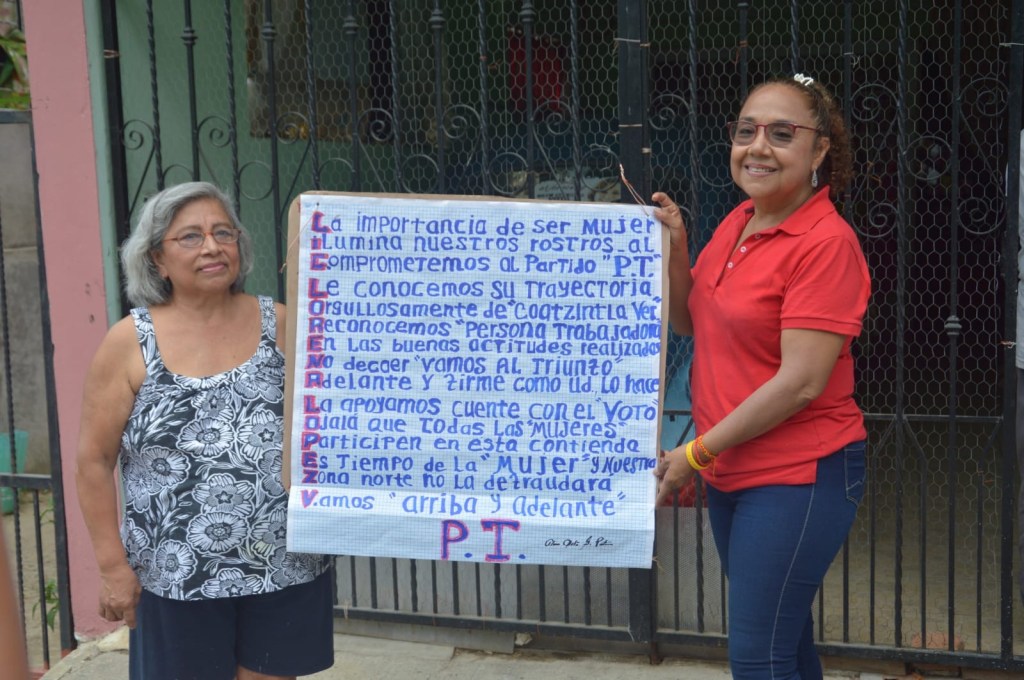 La importancia de ser mujer
ilumina nuestros rostros al
Comprometemos al Partido "P.T."
Le conocemos su trayectoria
Orgullosamente de "Coatzintla Ver."
Reconocemos "Persona Trabajadora
En las buenas actitudes realizadas
No decaer "vamos al Triunfo"
Adelante y firme como ud. Lo hace
La apoyamos cuente con el "VOTO"
Ojalá que Todas Las "Mujeres"
Participen en esta contienda
Es Tiempo de La "Mujer" y Nuestra
Zona norte no La defraudará
Vamos "arriba y adelante"
P.T.